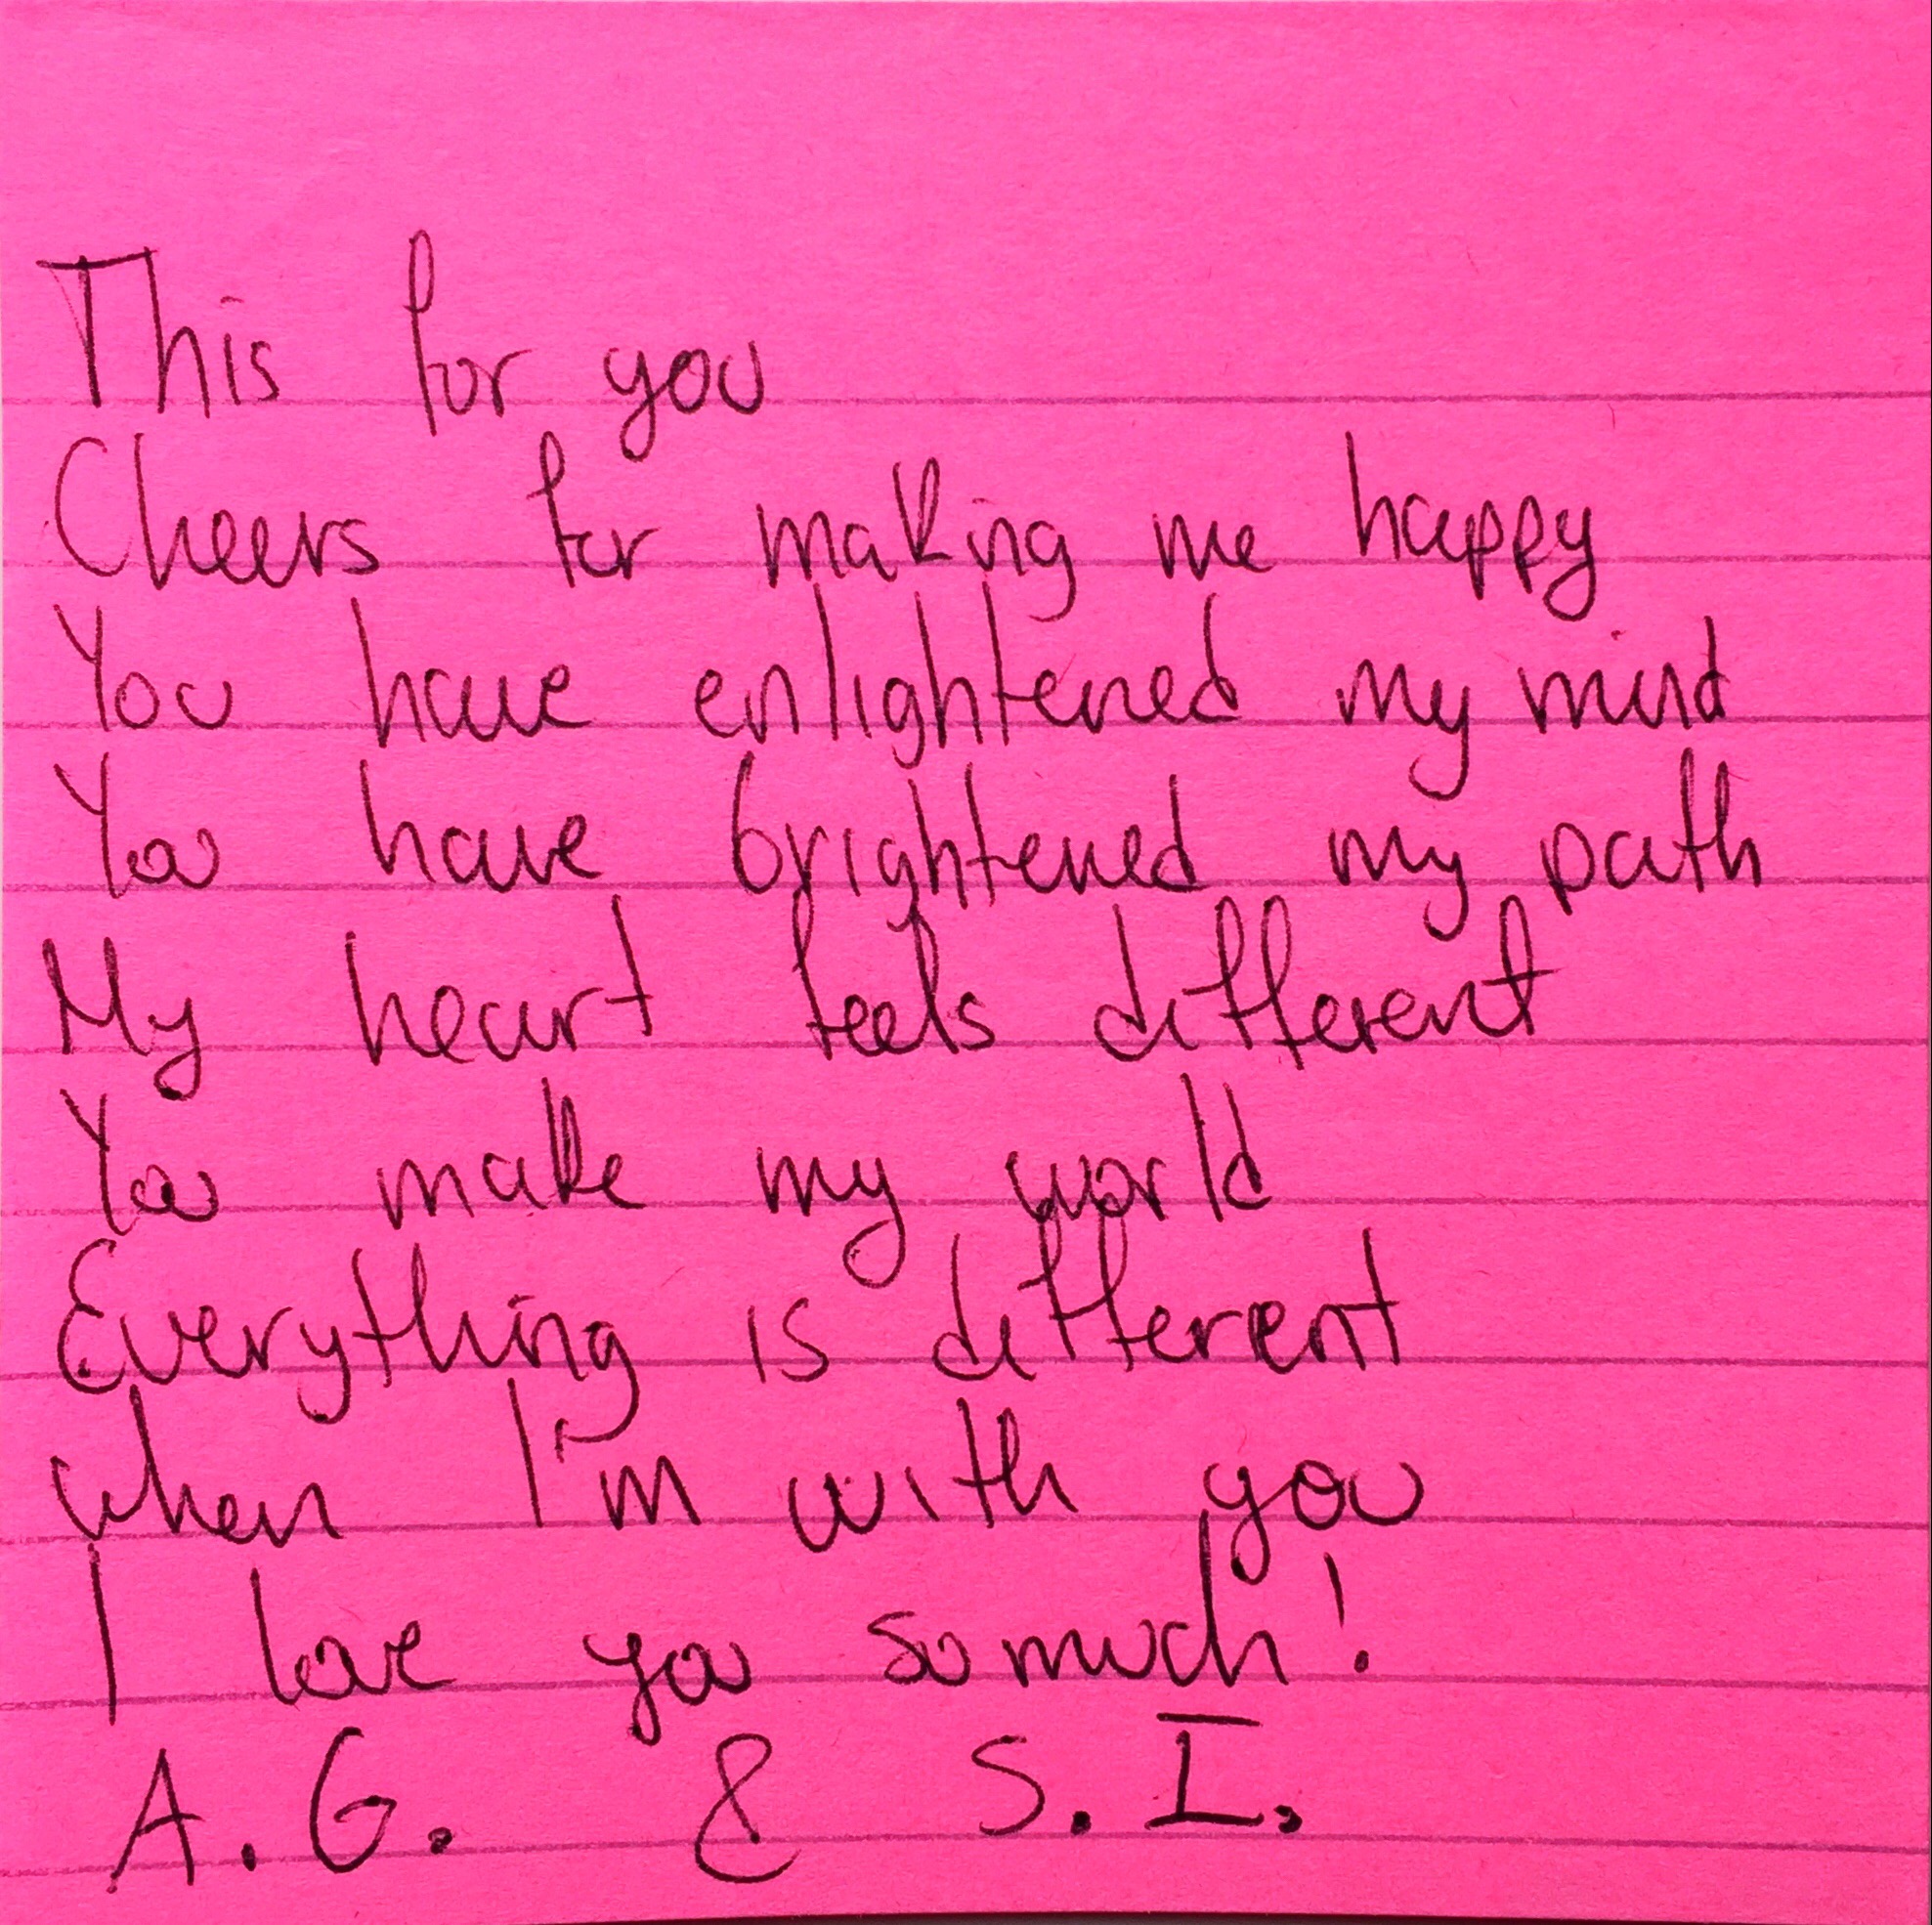 This for you
Cheers for making me happy
You have enlightened my mind
You have brightened my path
My heart feels different
You make my world
Everything is different
when I'm with you
I love you so much!
A.G. & S.I.